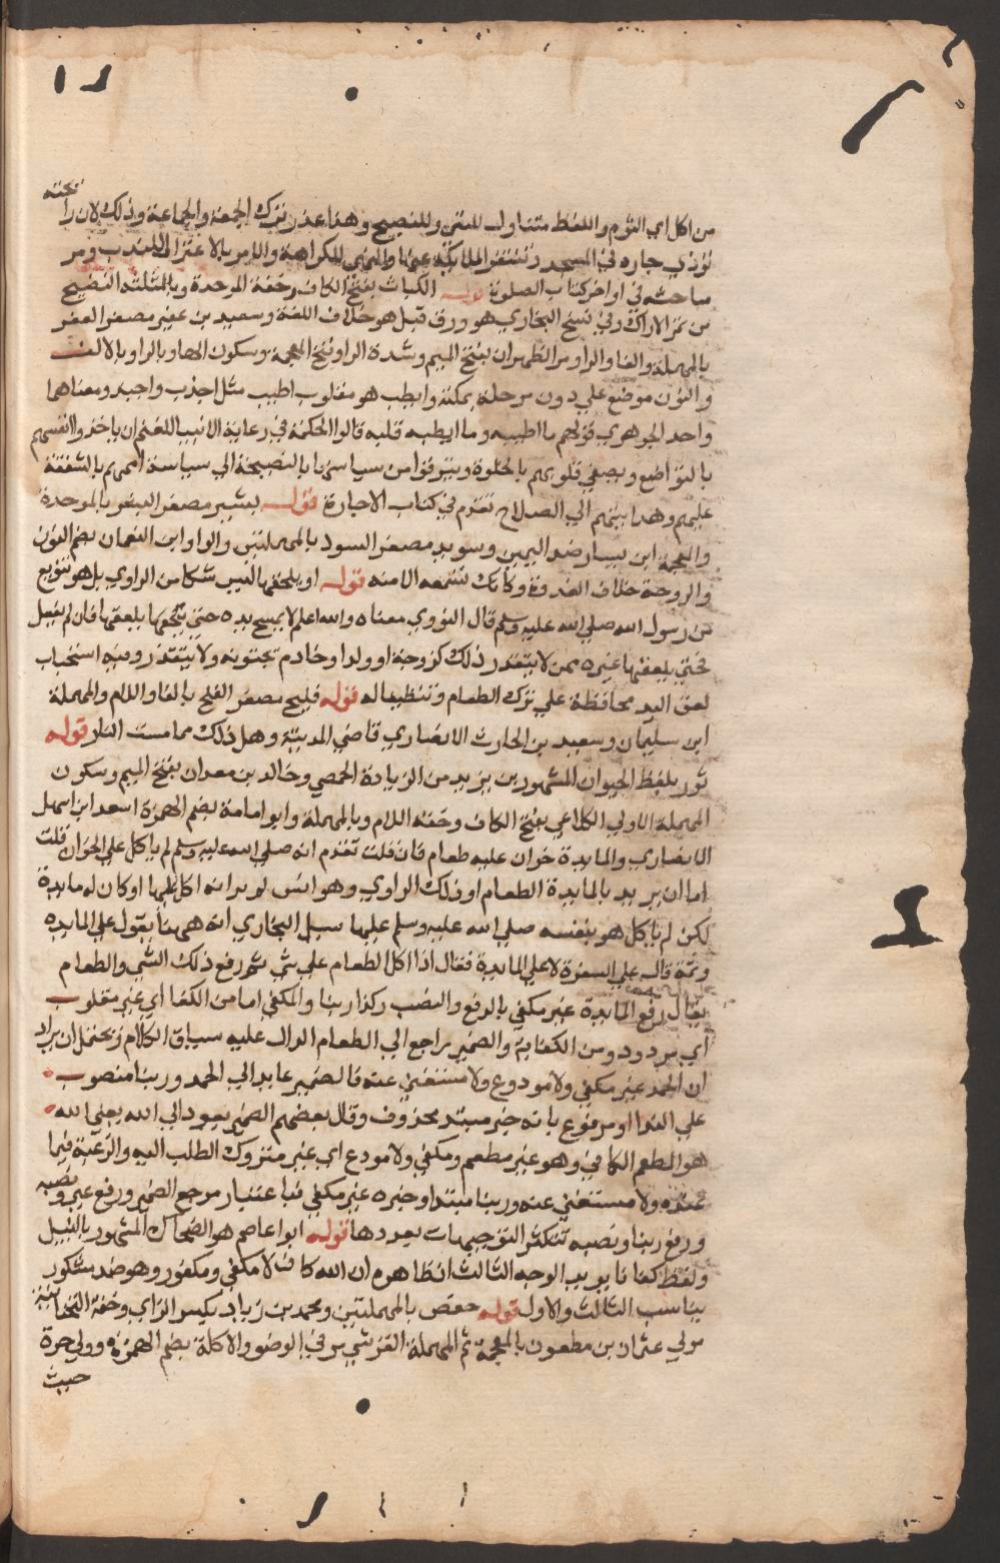 من اكل اي الثوم واللفظ متناول للنتن وللنضيج وهذا عذر ترك الجمعة والجماعة وذلك لان رائحته
تؤذي جاره في المسجد وتنفر الملائكة عنها والنهي للكراهة والامر بالاعتزال للندب ومر
مباحثه في اواخر كتاب الصلوة قوله الكباث بفتح الكاف وخفة الموحدة وبالمثلثة النضيج
من ثمر الاراك وفي نسخ البخاري هو ورق قيل هو خلاف اللغة وسعيد بن عفير مصغر العفر
بالمهملة والفا والرا ومر الظهران بفتح الميم وشدة الرا وفتح المعجمة وسكون الها وبالرا وبالالف
والنون موضع علي دون مرحلة بمكة وايطب هو مقلوب اطيب مثل اجذب واجبد ومعناهما
واحد الجوهري قولهم ما اطيبه وما ايطبه قلبه قالوا الحكمة في رعاية الانبيا للغنم ان ياخذوا انفسهم
بالتواضع وتصفي قلوبهم بالخلوة ويترقوا من سياستها بالنصيحة الي سياسة اممهم بالشفقة
عليهم وهدايتهم الي الصلاح تقدم في كتاب الاجارة قوله بشير مصغر البشر بالموحدة
والمعجمة ابن يسار ضد اليمين وسويد مصغر السود بالمهملتين والواو ابن النعمان بضم النون
والروحة خلاف الغدوة وكانك تسمعه الا منه قوله او يلعقها ليس شكا من الراوي بل هو تنويع
من رسول الله صلي الله عليه وسلم قال النووي معناه والله اعلم لا يمسح يده حتي يلعقها فان لم يفعل
حتي يلعقها غيره ممن لا يتقذر ذلك كزوجة او ولد او خادم يحبونه ولا يتقذرونه استحباب
لعق اليد محافظة علي بركة الطعام وتنظيفا له قوله فليح مصغر الفلح بالفا واللام والمهملة
ابن سليمان وسعيد بن الحارث الانصاري قاضي المدينة وهل ذلك مما مست النار قوله
ثور بلفظ الحيوان المشهور بن يزيد من الزيادة الحمصي وخالد بن معدان بفتح الميم وسكون
المهملة الاولي الكلاعي بفتح الكاف وخفة اللام وبالمهملة وابو امامة بضم الهمزة اسعد ابن سهل
الانصاري والمايدة خوان عليه طعام فان قلت تقدم انه صلي الله عليه وسلم لم ياكل علي الخوان قلت
اما ان يريد بالمايدة الطعام او ذلك الراوي وهو انس لم ير انه اكل عليها او كان له مايدة
لكن لم ياكل هو بنفسه صلي الله عليه وسلم عليها سيل البخاري انه ههنا يقول علي المايده
وثمة قال علي السفرة لا علي المايدة فقال اذا اكل الطعام علي شي ثم رفع ذلك الشي والطعام
يقال رفع المايدة غير مكفي بالرفع والنصب وكذا ربنا والمكفي اما من الكفا اي غير مقلوب
اي مردود ومن الكفاية والضمير راجع الي الطعام الدال عليه سياق الكلام ويحتمل ان يراد
ان الحمد غير مكفي ولا مودوع ولا مستغني عنه فالضمير عايد الي الحمد وربنا منصوب
علي الندا او مرفوع بانه خبر مبتدا محذوف وقال بعضهم الضمير يعود الي الله يعني الله
هو المطعم الكافي وهو غير مطعم ومكفي ولا مودع اي غير متروك الطلب اليه والرغبة فيما
عنده ولا مستغني عنه وربنا مبتدا وخبره غير مكفي فباعتبار مرجع الضمير ورفع غير ونصبه
ورفع ربنا ونصبه تتكثر التوجيهات بعددها قوله ابو عاصم هو الضحاك المشهور بالنبيل
ولفظ كفانا يويد الوجه الثالث اذ ظاهره ان الله كاف لا مكفي ومكفور وهو ضد مشكور
يناسب الثالث والاول قوله حفص بالمهملتين ومحمد بن زياد بكسر الزاي وخفة التحتانية
مولي عثمان بن مظعون بالمعجمة ثم المهملة القرشي مر في الوضو والاكلة بضم الهمزة وولي حره
حيث